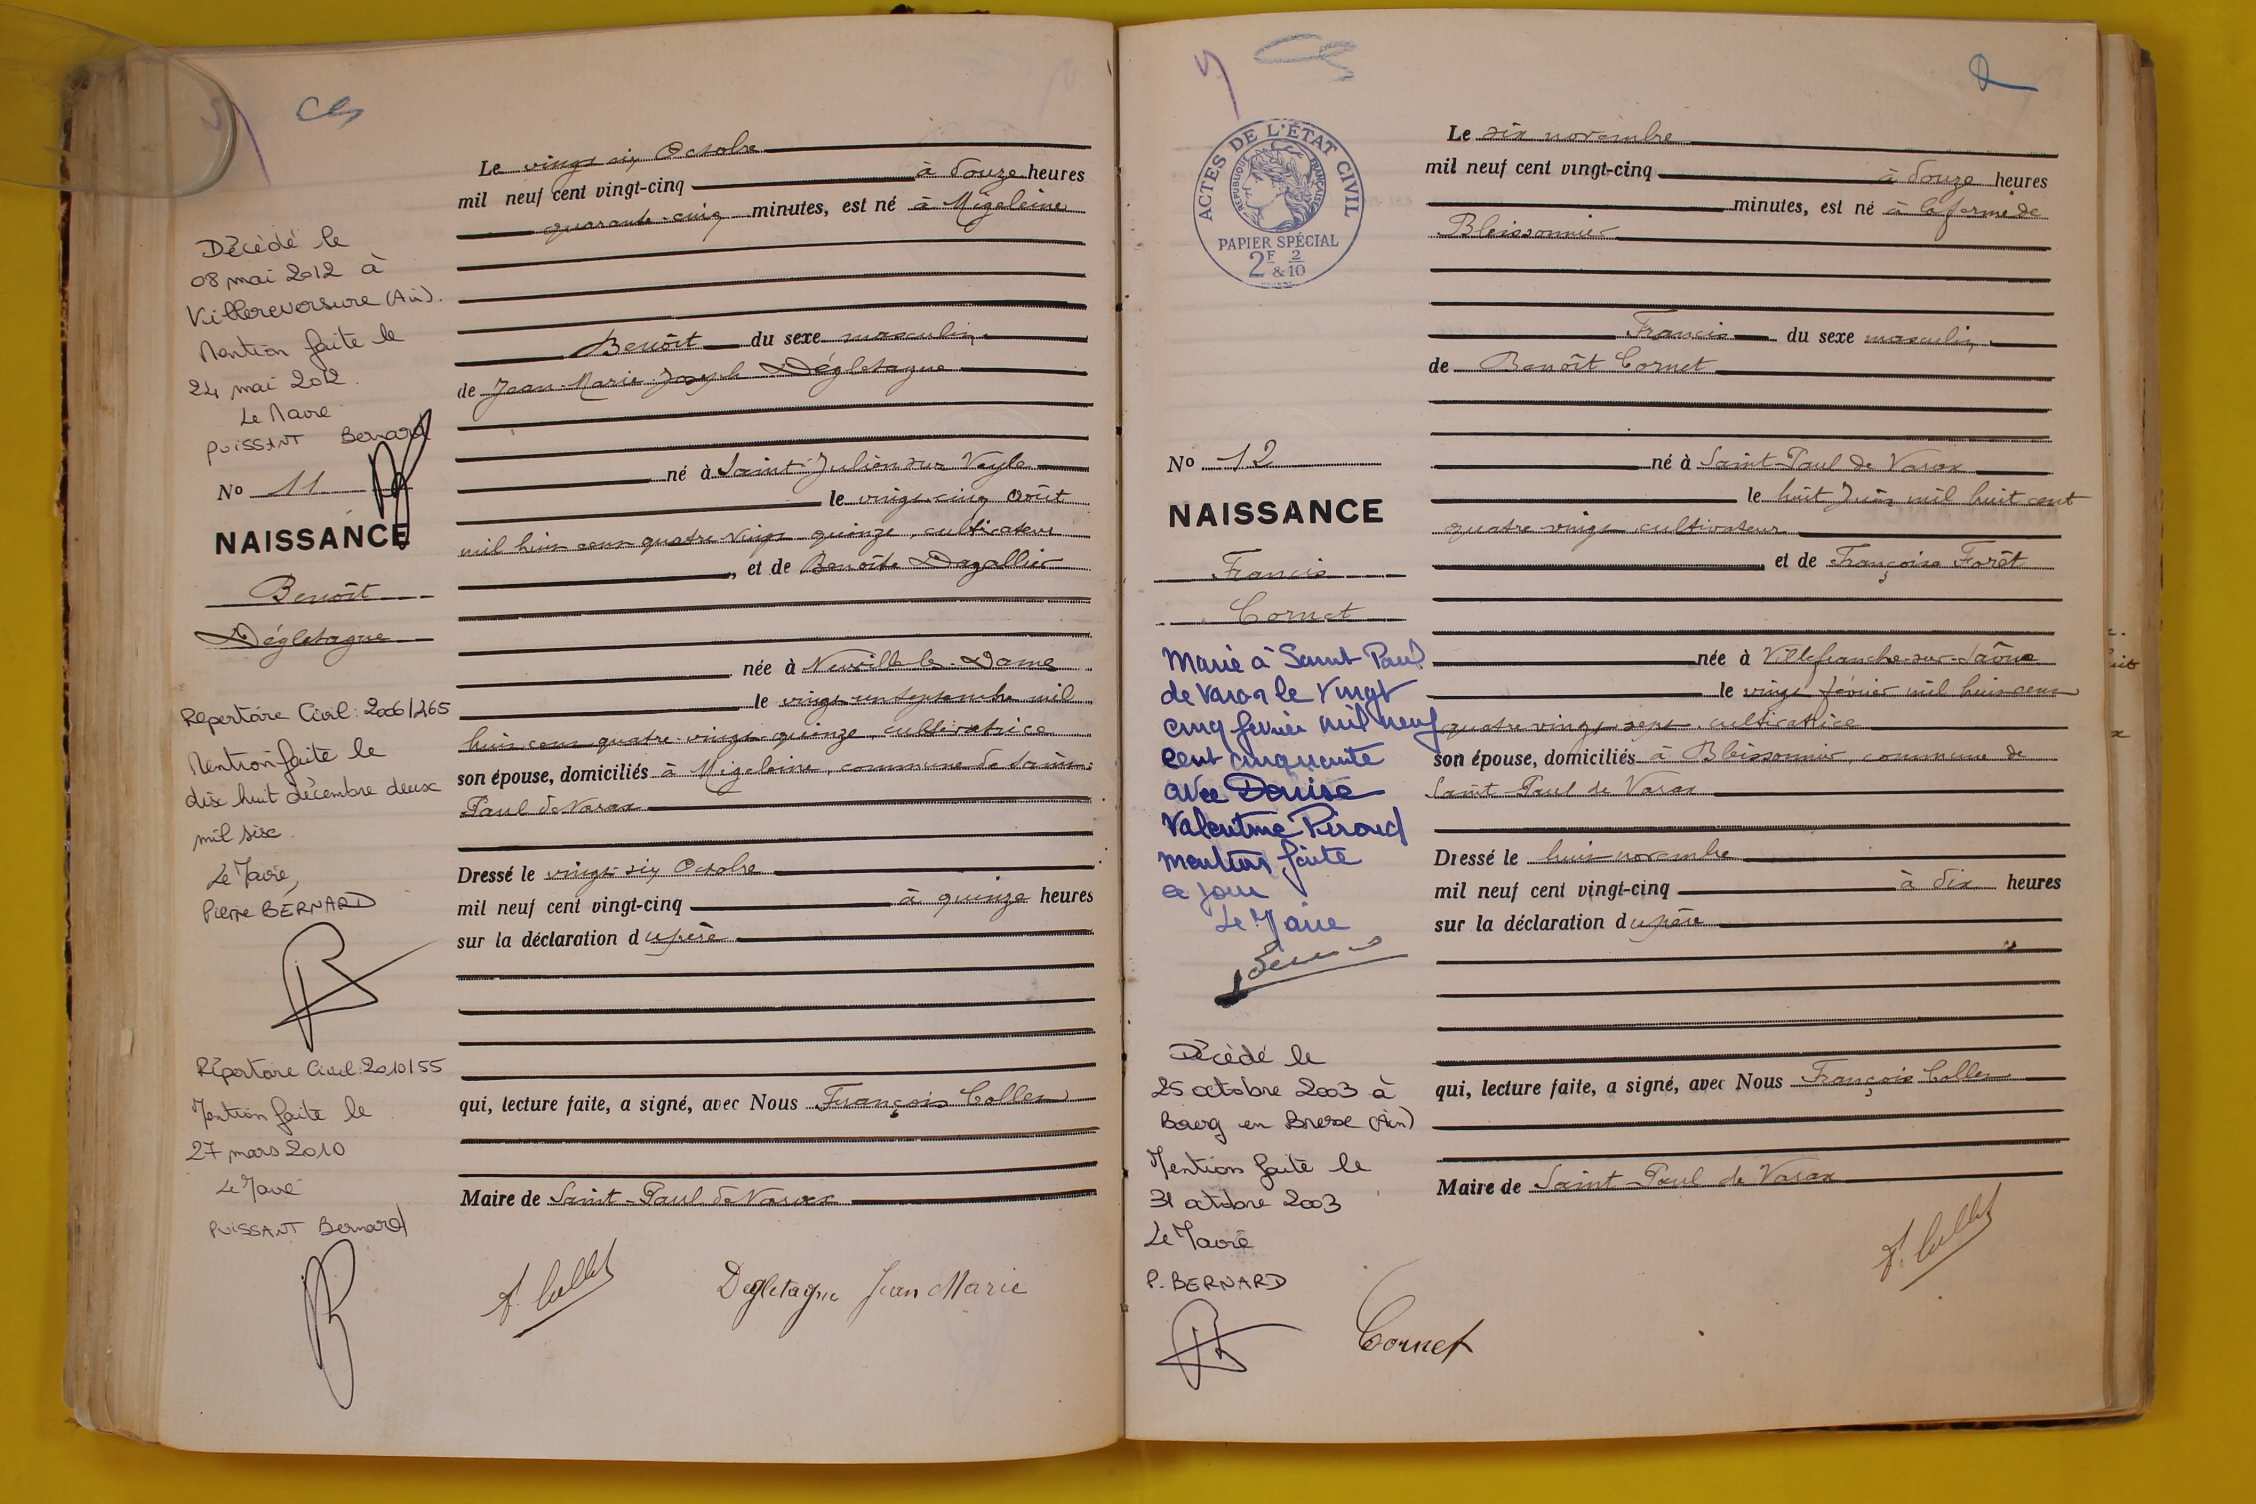 Le vingt six Octobre
mil neuf cent vingt-cinq à douze heures
quarante-cinq minutes, est né à Mizeleine
Benoît du sexe masculin
de Jean-Marie Joseph Dégletagne
né à Saint-Julien sur Veyle
le vingt-cinq Août
mil huit cent quatre vingt quinze, cultivateur
, et de Benoîte Dagallier
née à Neuville-les-Dames
le vingt un septembre mil
huit cent quatre-vingt-quinze, cultivatrice
son épouse, domiciliés à Mizeleine, commune de Saint-
Paul de Varax
Dressé le vingt-six Octobre
mil neuf cent vingt-cinq à quinze heures
sur la déclaration du père
qui, lecture faite, a signé, avec Nous François Collet
Maire de Saint-Paul de Varax
Degletagne Jean Marie
Décédé le
08 mai 2012 à
Villereversure (Ain).
Mention faite le
24 mai 2012.
Le Maire
PUISSANT Bernard
No 11
NAISSANCE
Benoît
Dégletagne
Repertoire Civil: 2006/265
Mention faite le
dix huit décembre deux
mil six.
Le Maire,
Pierre BERNARD
Répertoire Civil: 2010/55
Mention faite le
27 mars 2010
Le Maire
PUISSANT Bernard
ACTES DE L'ÉTAT CIVIL
RÉPUBLIQUE FRANÇAISE
PAPIER SPÉCIAL
2F & 2/10
Le six novembre
mil neuf cent vingt-cinq à douze heures
minutes, est né à la ferme de
Bleissonnier
Francis du sexe masculin
de Benoît Cornet
né à Saint-Paul de Varax
le huit Juin mil huit cent
quatre vingt, cultivateur
et de Françoise Forêt
née à Villefranche-sur-Saône
le vingt février mil huit cent
quatre vingt sept, cultivatrice
son épouse, domiciliés à Bleissonnier, commune de
Saint-Paul de Varax
Dressé le huit novembre
mil neuf cent vingt-cinq à dix heures
sur la déclaration du père
qui, lecture faite, a signé, avec Nous François Collet
Maire de Saint-Paul de Varax
Cornet
No 12
NAISSANCE
Francis
Cornet
Marié à Saint Paul
de Varax le Vingt
cinq fevrier mil neuf
cent cinquante
avec Denise
Valentine Piroud
mention faite
ce jour
Le Maire
Décédé le
25 octobre 2003 à
Bourg en Bresse (Ain)
Mention faite le
31 octobre 2003
Le Maire
P. BERNARD